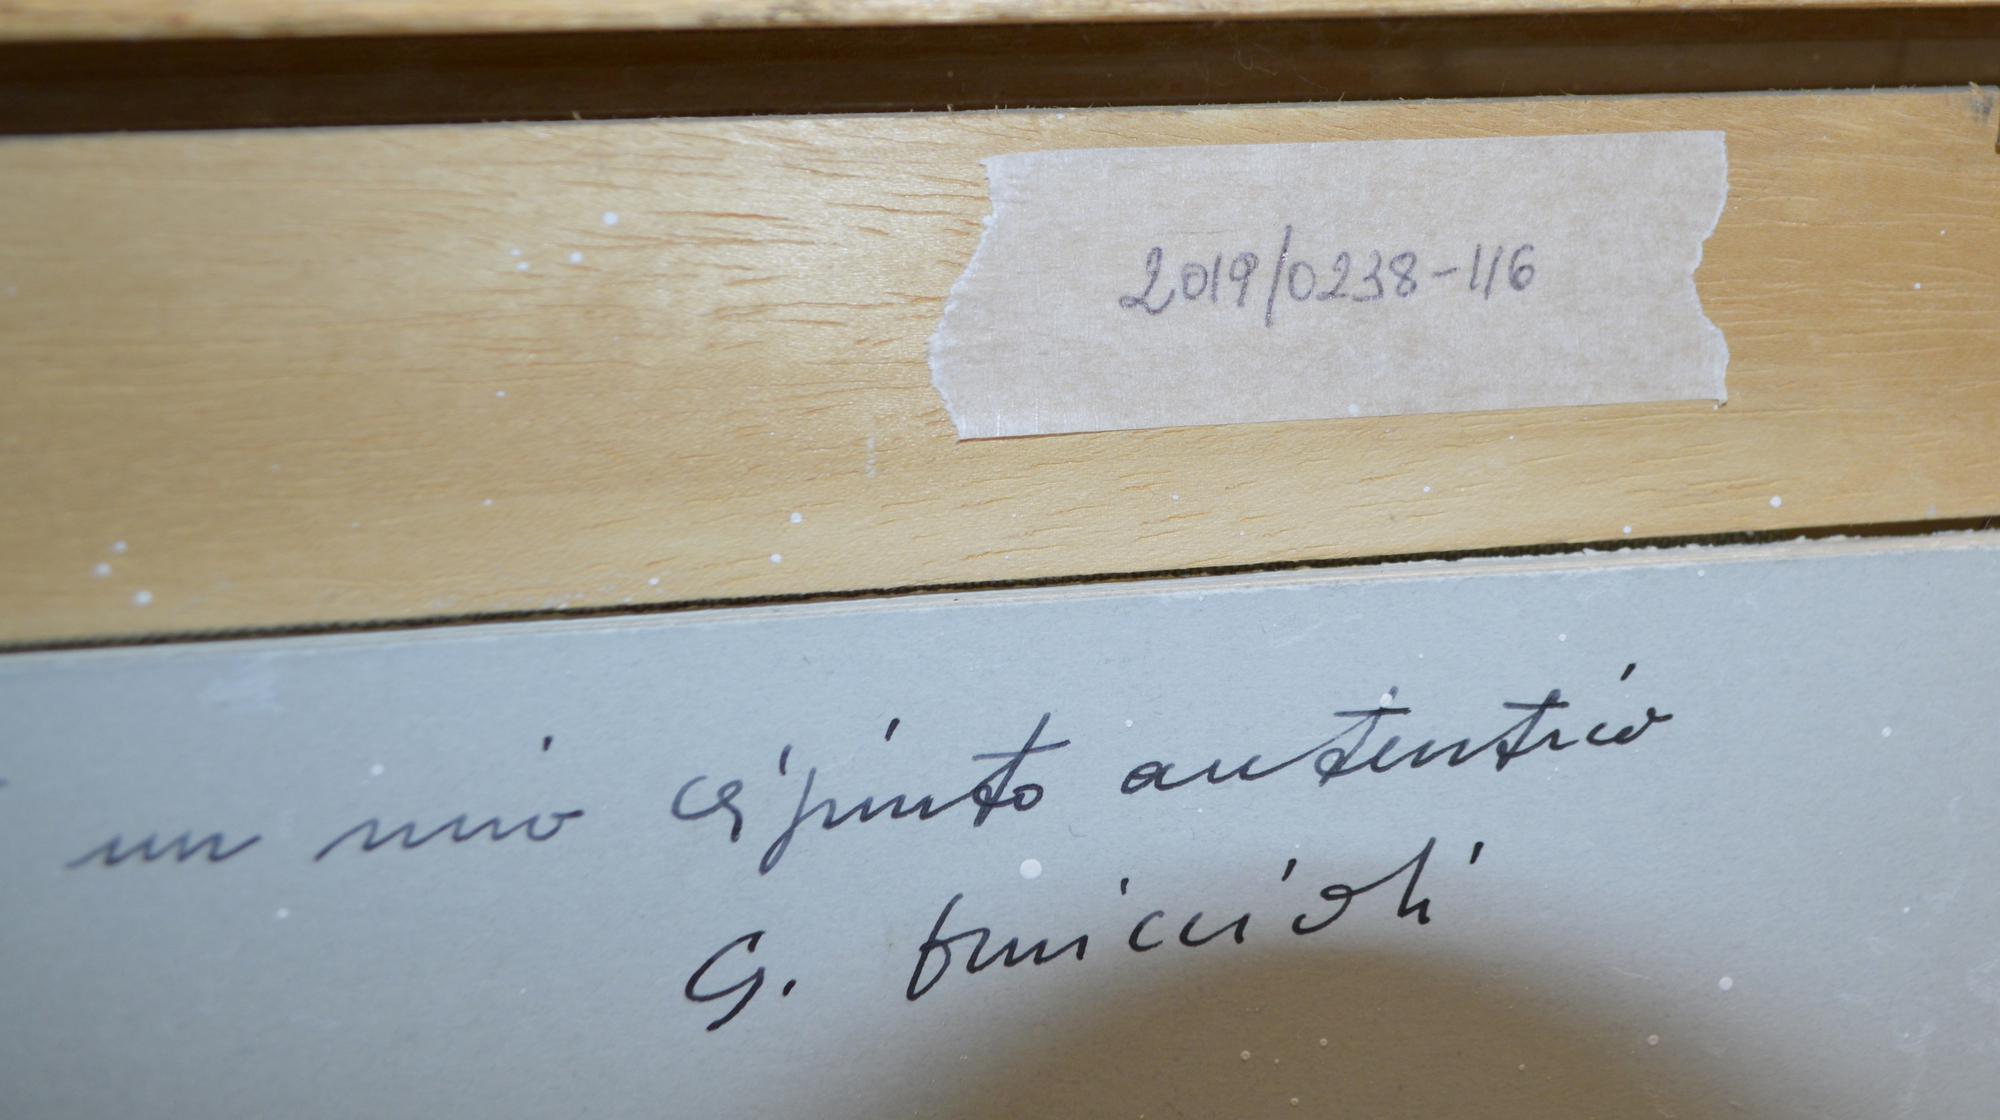 2019/0238-116
un mio dipinto autentico
G.